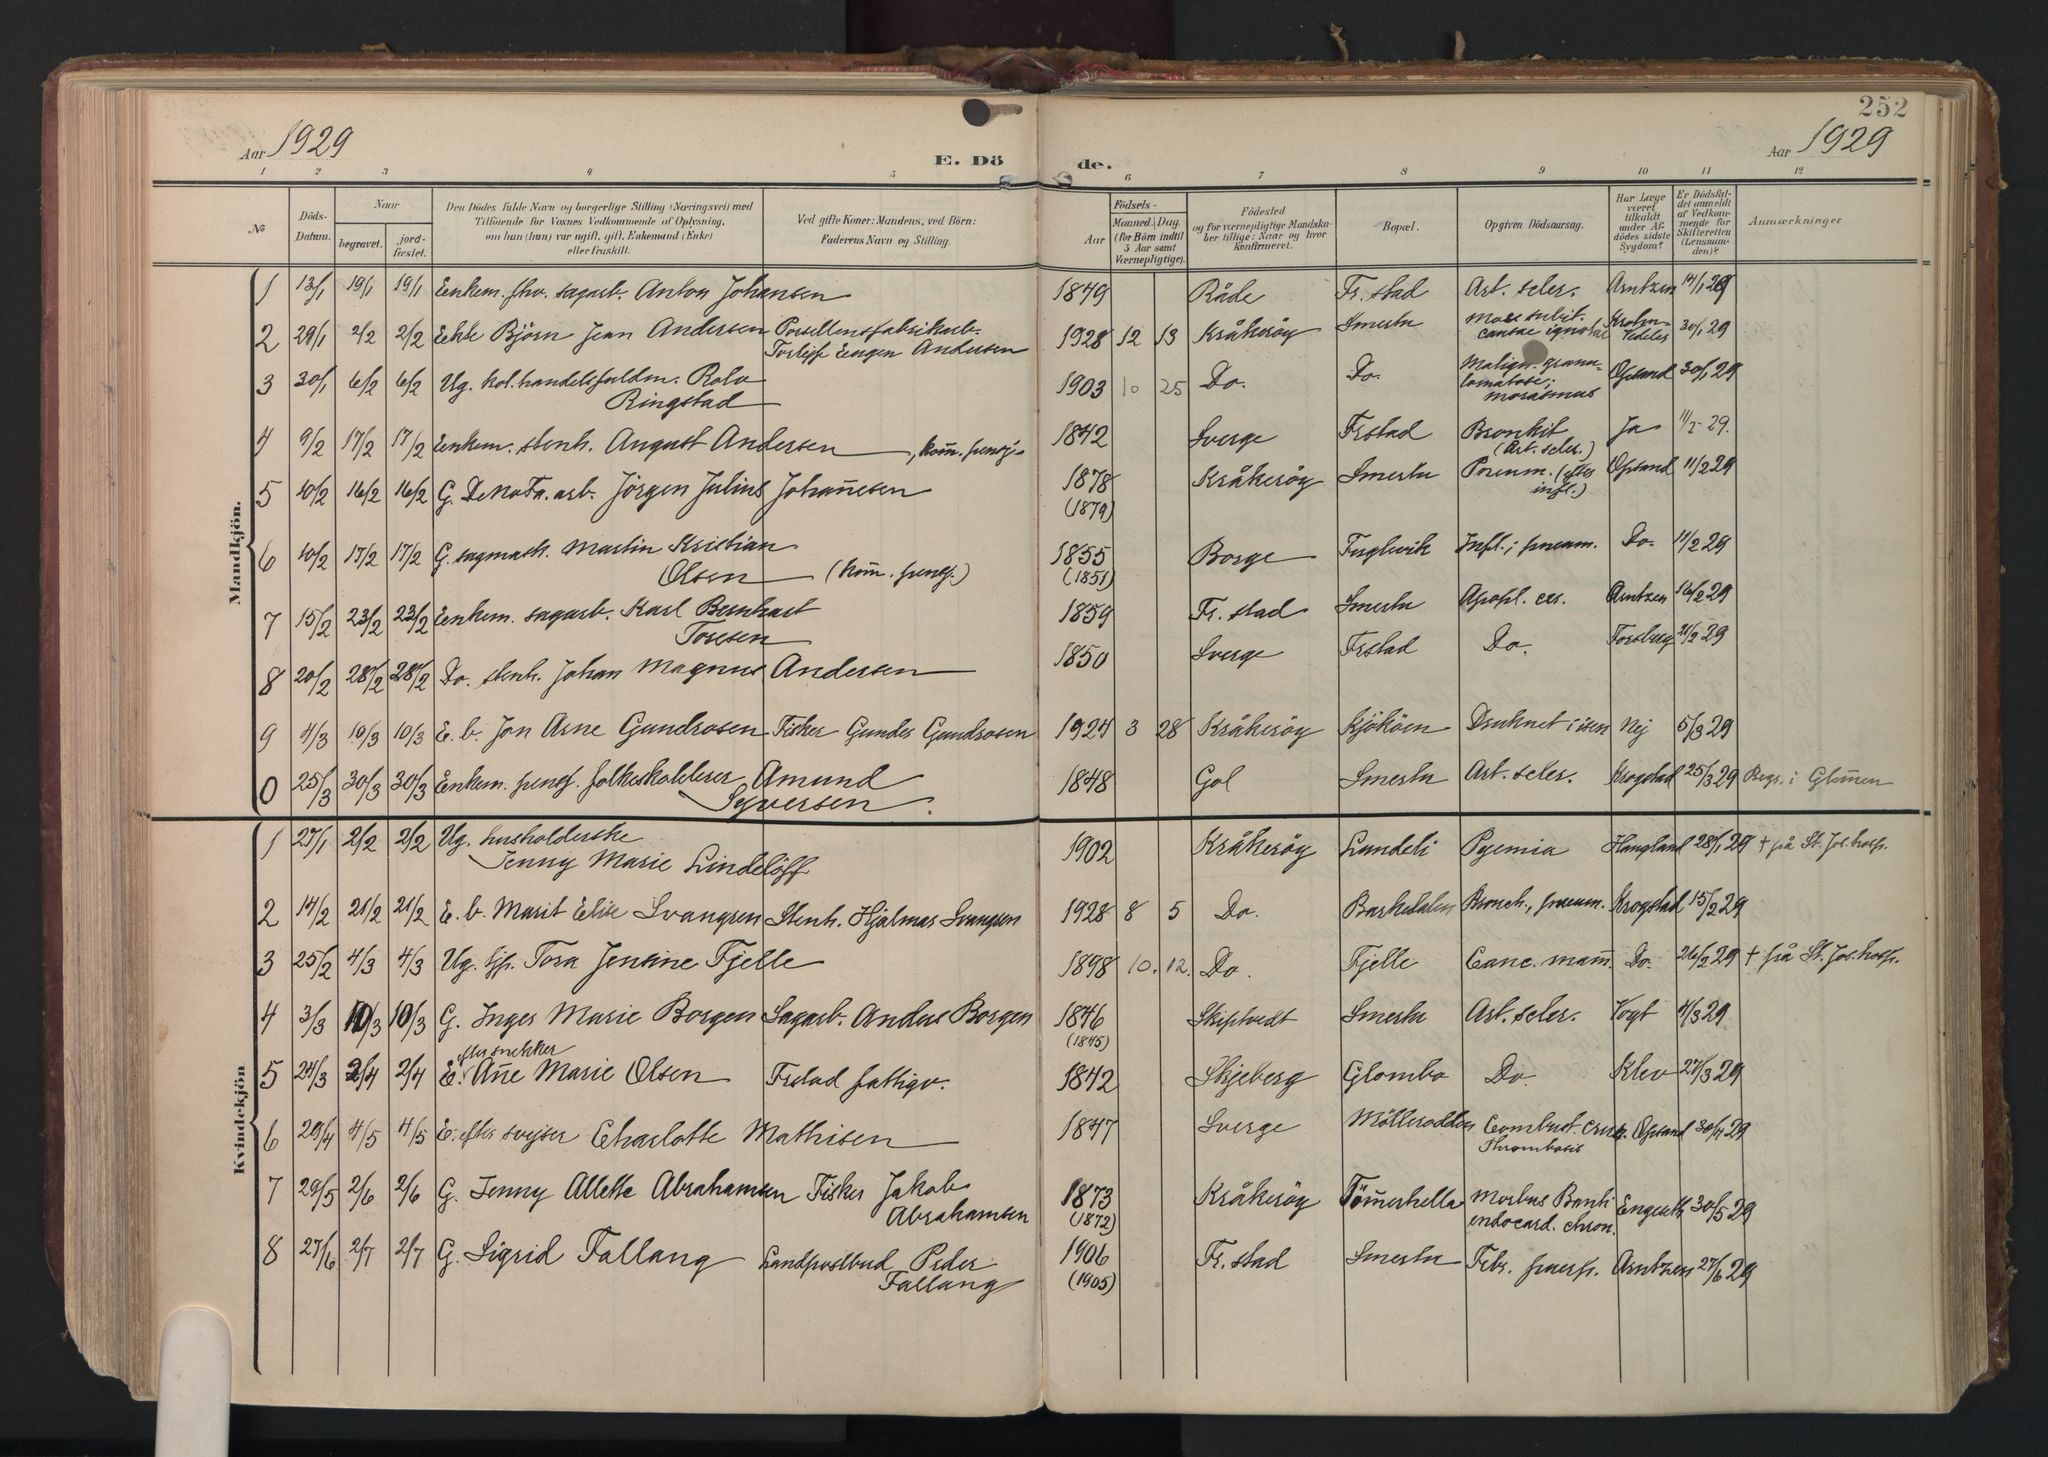 252
Aar 1929
E. Dö
de.
Aar 1929
1 2 3 4 5 6 7 8 9 10 11 12
№
Döds-Datum.
Naar
begravet.
jord-fæstet.
Den Dödes fulde Navn og borgerlige Stilling (Næringsvei) med
Tilföiende for Voxnes Vedkommende af Oplysning,
om han (hun) var ugift, gift, Enkemand (Enke)
eller fraskilt.
Ved gifte Koner: Mandens, ved Börn:
Faderens Navn og Stilling.
Födsels-
Aar
Maaned. Dag.
(for Börn indtil
5 Aar samt
Værnepligtige).
Födested
og for værnepligtige Mandska-
ber tillige: Naar og hvor
konfirmeret.
Bopæl.
Opgiven Dödsaarsag.
Har Læge
været
tilkaldt
under Af-
dödes sidste
Sygdom?
Er Dödsfal-
det anmeldt
af Vedkom-
mende for
Skifteretten
(Lensman-
den)?
Anmærkninger
Mandkjön.
1 13/1 19/1 19/1 Enkem. fhv. sagarb. Anton Johansen 1849 Råde Fr.stad Art. scler. Arntzen 14/1 29
2 29/1 2/2 2/2 Ekte Björn Jean Andersen Porsellensfabrikarb. 1928 12 13 Kråkeröy Smertu Mors subit. Krohn- 30/1 29
Eugen Andersen causae ignotae Vedeler
3 30/1 6/2 6/2 Ug. kol.handelsfuldm. Rolv 1903 10 25 Do. Do. Malign. granu- Opsand 30/1 29
Ringstad lomatose; marasmus
4 9/2 17/2 17/2 Enkem. stenh. August Andersen, kom̄. 1842 Sverge Frstad Bronkit Ja 11/2 29.
(Art. scler.)
5 10/2 16/2 16/2 G. DeNoFa. arb. Jörgen Julius Johan̄esen 1878 Kråkeröy Smertu Pneum. (efter Opsand 11/2 29
(1879) infl.)
6 10/2 17/2 17/2 G. sagmest. Martin Kristian 1855 Borge Fuglevik Infl.; pneum. Do. 11/2 29
Olsen (kom̄. pensj.) (1851)
7 15/2 23/2 23/2 Enkem. sagarb. Karl Bernhart 1859 Fr.stad Smertu Apopl. cer. Arntzen 16/2 29
Toresen
8 20/2 28/2 28/2 Do. stenh. Johan Magnus Andersen 1850 Sverge Frstad Do. Forsberg 21/2 29
9 4/3 10/3 10/3 E. b. Jon Arne Gundrosen Fisker Gunder Gundrosen 1924 3 28 Kråkeröy Kjököen Druknet i isen Nej 5/3 29
0 25/3 30/3 30/3 Enkem. pensj. folkeskolelærer Amund 1848 Gol Smertu Art. scler. Krogstad 25/3 29 Begr. i Glem̄en
Syversen.
Kvindekjön
1 27/1 2/2 2/2 Ug. husholderske 1902 Kråkeröy Lundeli Pyemia Haugland 28/1 29 + på St. Jos. hosp.
Jenny Marie Lindelöff
2 14/2 21/2 21/2 E. b. Marit Elise Svangren Stenh. Hjalmar Svangren 1928 8 5 Do. Barkedalen Bronch., pneum. Krogstad 15/2 29
3 25/2 4/3 4/3 Ug. tjp. Tora Jensine Fjelle 1898 10. 12. Do. Fjelle Canc. mam̄. Do. 26/2 29 + på St. Jos. hosp.
4 3/3 10/3 10/3 G. Inger Marie Borgen Sagarb. Anders Borgen 1846 Skiptvedt Smertu Art. scler. Vogt 4/3 29
(1845)
efter snekker
5 24/3 2/4 2/4 E. An̄e Marie Olsen Frstad fattigv. 1842 Skjeberg Glombo Do. Klev 27/3 29
6 29/4 4/5 4/5 E. efter svejser Charlotte Mathisen 1847 Sverge Mölleroddeu Combust. Opsand 30/4 29
Thrombosis
7 29/5 2/6 2/6 G. Jenny Allette Abrahamsen Fisker Jakob 1873 Kråkeröy Töm̄erhella Morbus Banti Engeseth 30/5 29
Abrahamsen (1872) endocard. chron.
8 27/6 2/7 2/7 G. Sigrid Fallang Landpostbud Peder 1906 Fr.stad Smertu Febr. puerp. Arntzen 27/6 29
Fallang (1905)